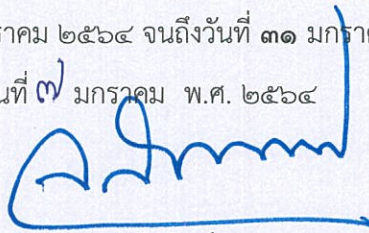 ราคม ๒๕๖๔ จนถึงวันที่ ๓๑ มกรา
นที่ ๗ มกราคม พ.ศ. ๒๕๖๔